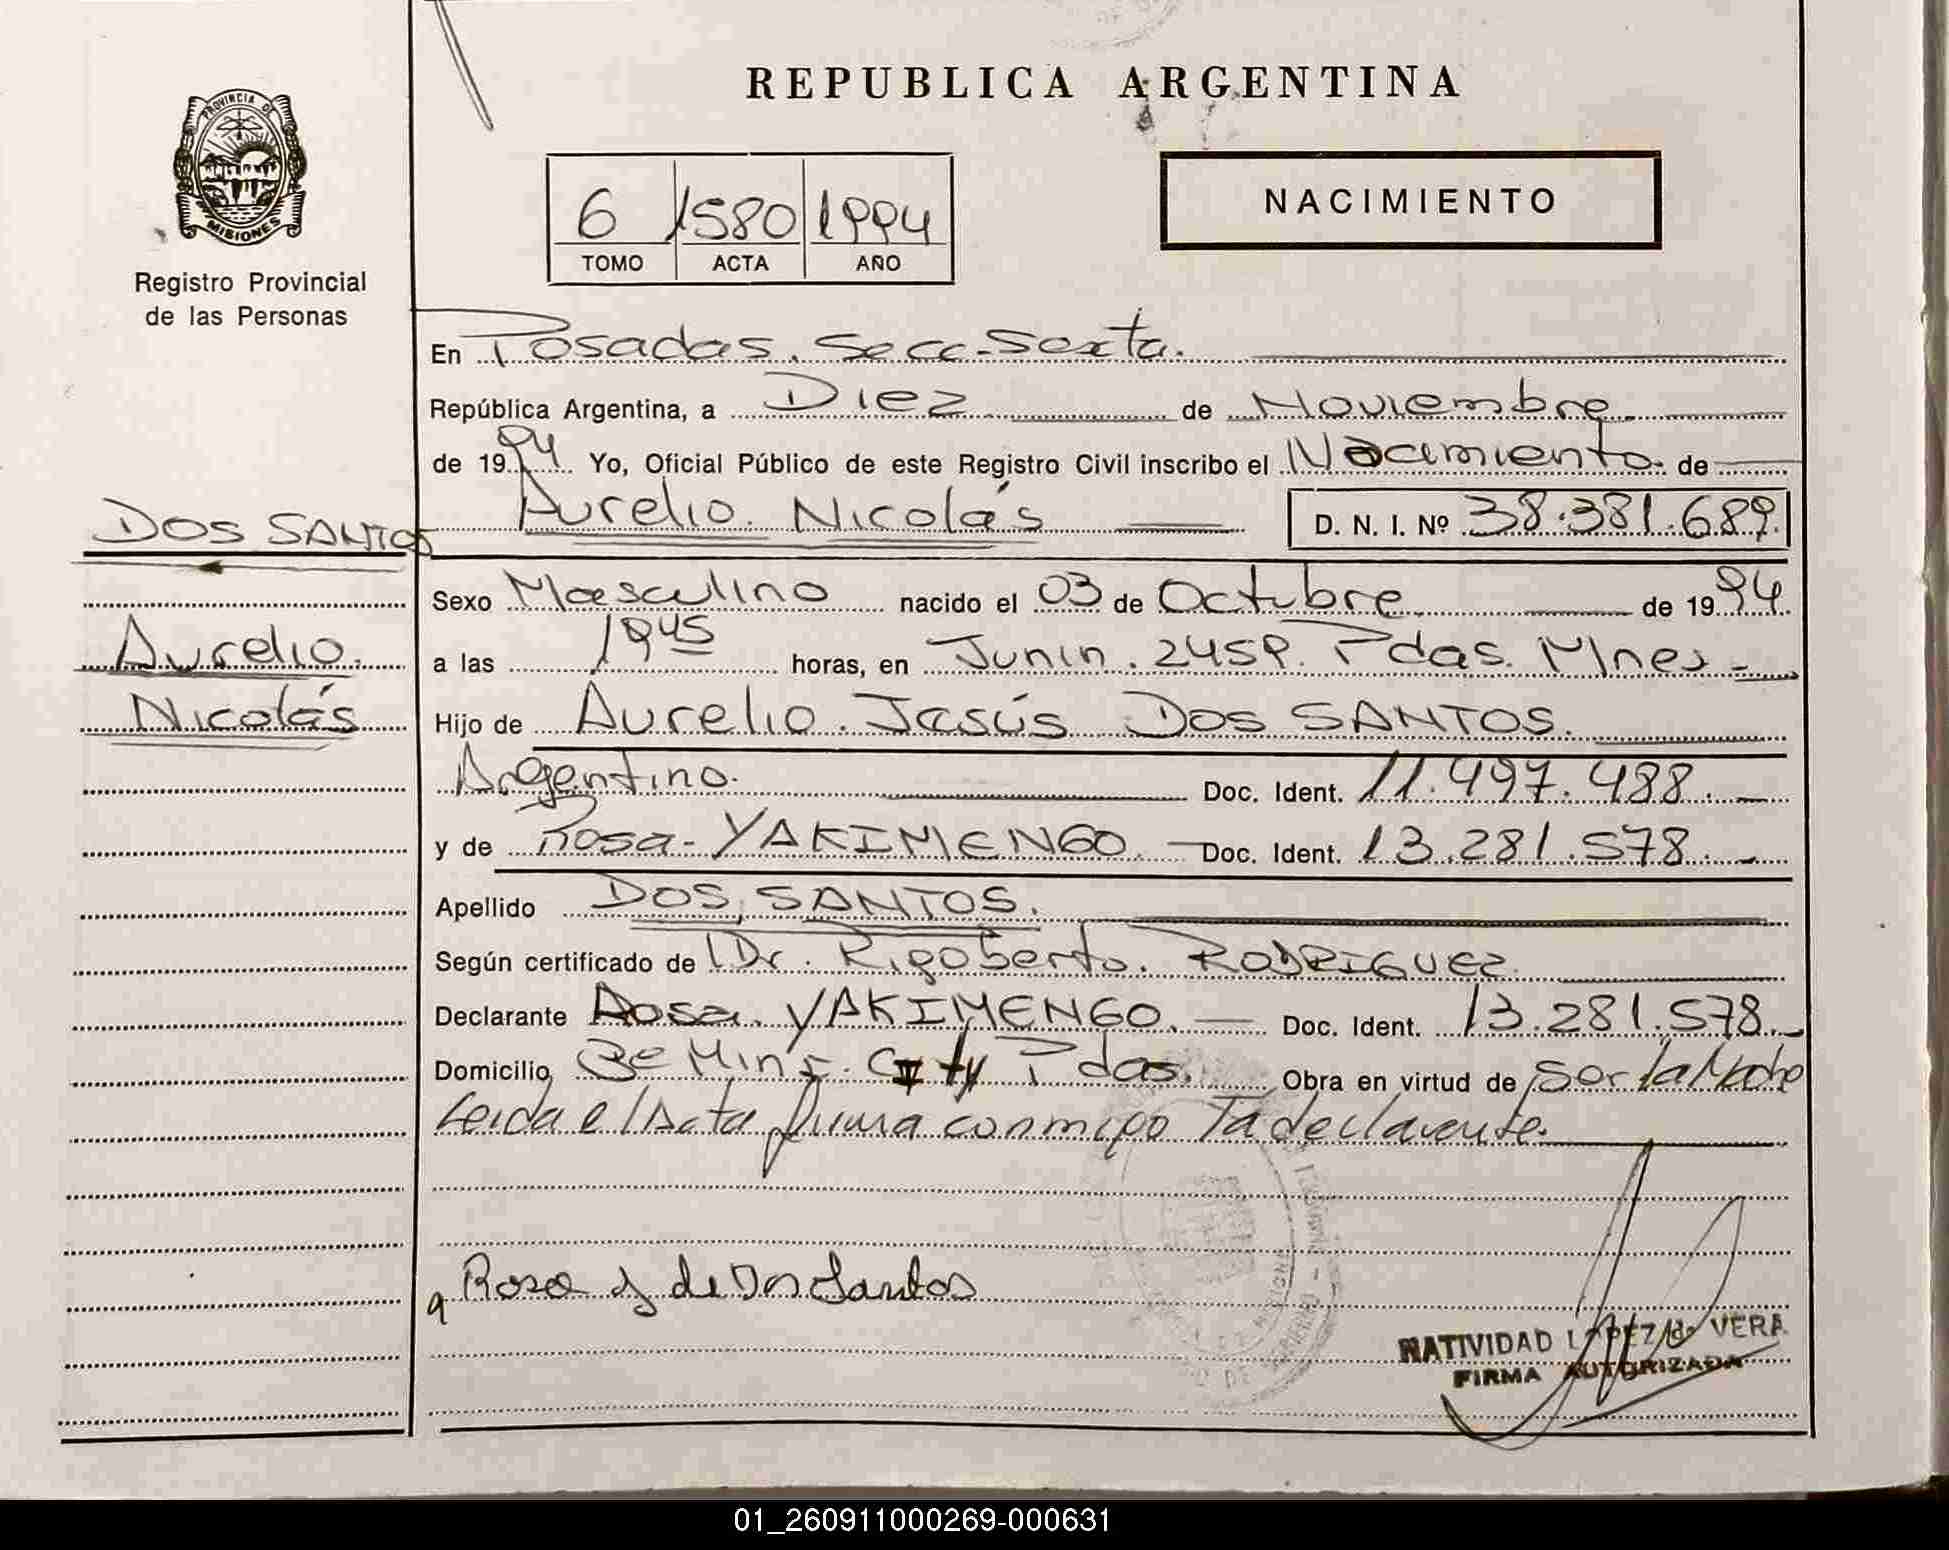 REPUBLICA ARGENTINA
PROVINCIA DE
MISIONES
Registro Provincial
de las Personas
6 1580 1994
TOMO ACTA AÑO
NACIMIENTO
En Posadas. Secc. Sexta.
República Argentina, a Diez de Noviembre
de 1994 Yo, Oficial Público de este Registro Civil inscribo el Nacimiento de
Aurelio Nicolás D. N. I. Nº 38.381.689.
DOS SANTOS
Aurelio
Nicolás
Sexo Masculino nacido el 03 de Octubre de 1994
a las 1945 horas, en Junin. 2459. Pdas. Mnes
Hijo de Aurelio Jesús DOS SANTOS.
Argentino. Doc. Ident. 11.497.488.
y de Rosa YAKIMENGO Doc. Ident. 13.281.578.
Apellido DOS SANTOS.
Según certificado de Dr. Rigoberto. RODRIGUEZ
Declarante Rosa YAKIMENGO. Doc. Ident. 13.281.578.
Domicilio Pdas. Obra en virtud de Ser la Madre
Leida el Acta firma conmigo la declarante.
Rosa Y de Dos Santos
NATIVIDAD LOPEZ de VERA
FIRMA AUTORIZADA
01_260911000269-000631